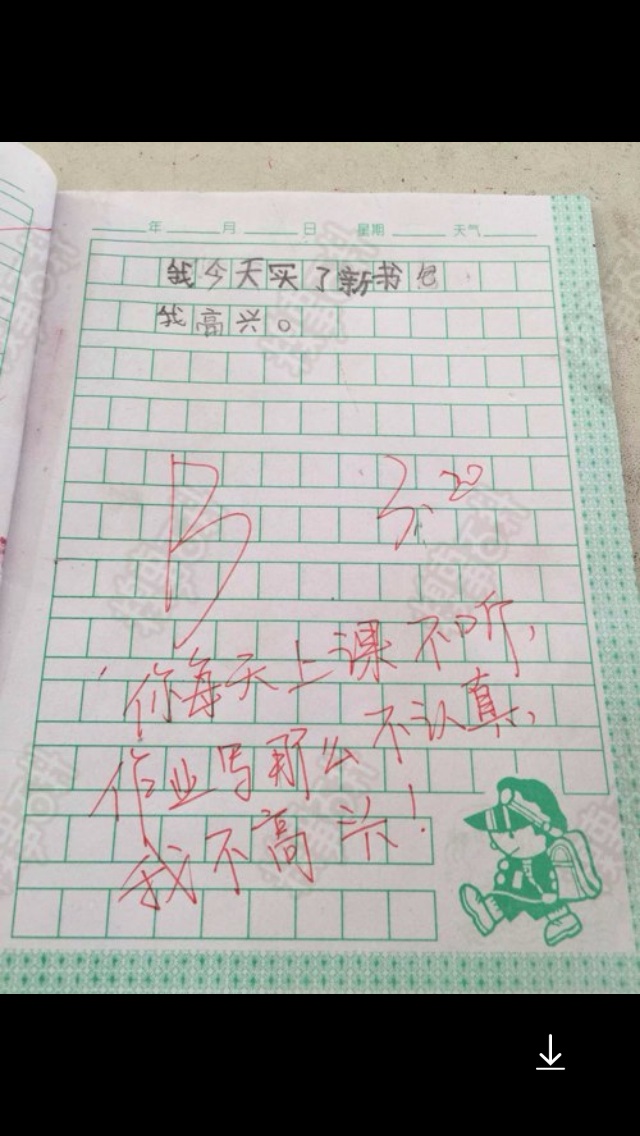 年 月 日 星期 天气
我今天买了新书包
我高兴。
B 3.20
你每天上课不听,
作业写那么不认真,
我不高兴!